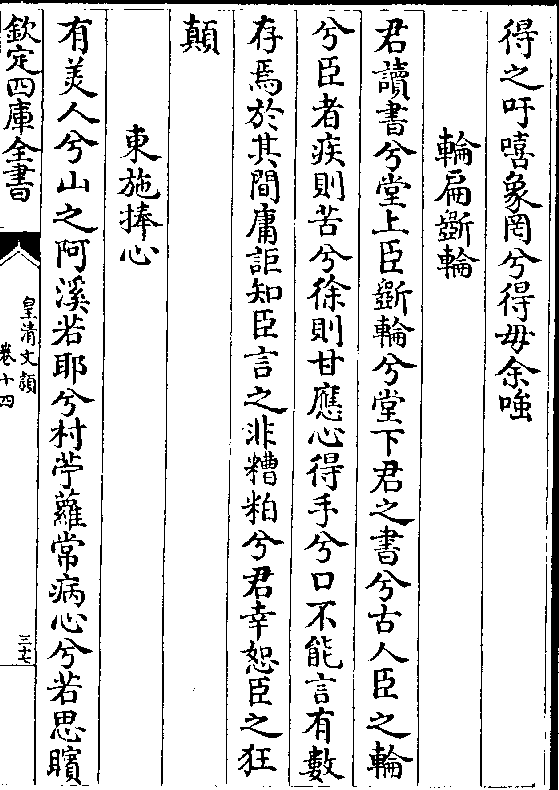 得之吁嘻象罔兮得毋余嗤
輪扁斲輪
君讀書兮堂上臣斲輪兮堂下君之書兮古人臣之輪
兮臣者疾則苦兮徐則甘應心得手兮口不能言有數
存焉於其間庸詎知臣言之非糟粕兮君幸恕臣之狂
顛
東施捧心
有美人兮山之阿溪若耶兮村苧蘿常病心兮若思矉
欽定四庫全書
皇清文穎
卷十四
三十七